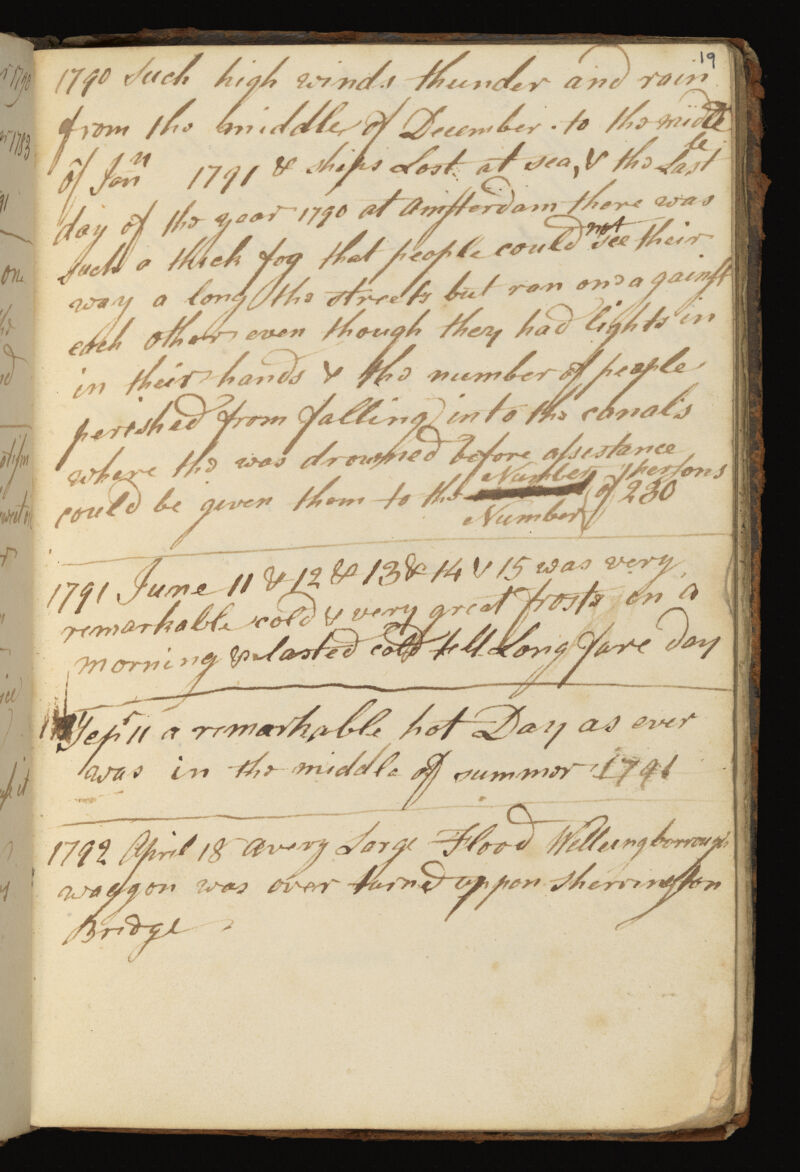 19
1790 Such high winds thunder and rain
from the middle of December to the middle
of Jan 1791 & ships Lost at sea, & the Last
day of the year 1790 at Amsterdam there was
such a thick fog that people could not see their
way a long the streets but ran one against
each other even though they had lights in
in their hands & the number of people
perished from falling into the canals
where the was drowned before assistance
could be given them to the Number of 230 persons
Number
1791 June 11 & 12 & 13 & 14 & 15 was very
remarkable cold & very great frosts on a
morning & lasted cold tell Long fare day
Sepr 11 a remarkable hot Day as ever
was in the middle of summer 1791
1792 April 18 a very Large Flood Wellungborrough
waggon was over turned uppon Sherrington
Bridge